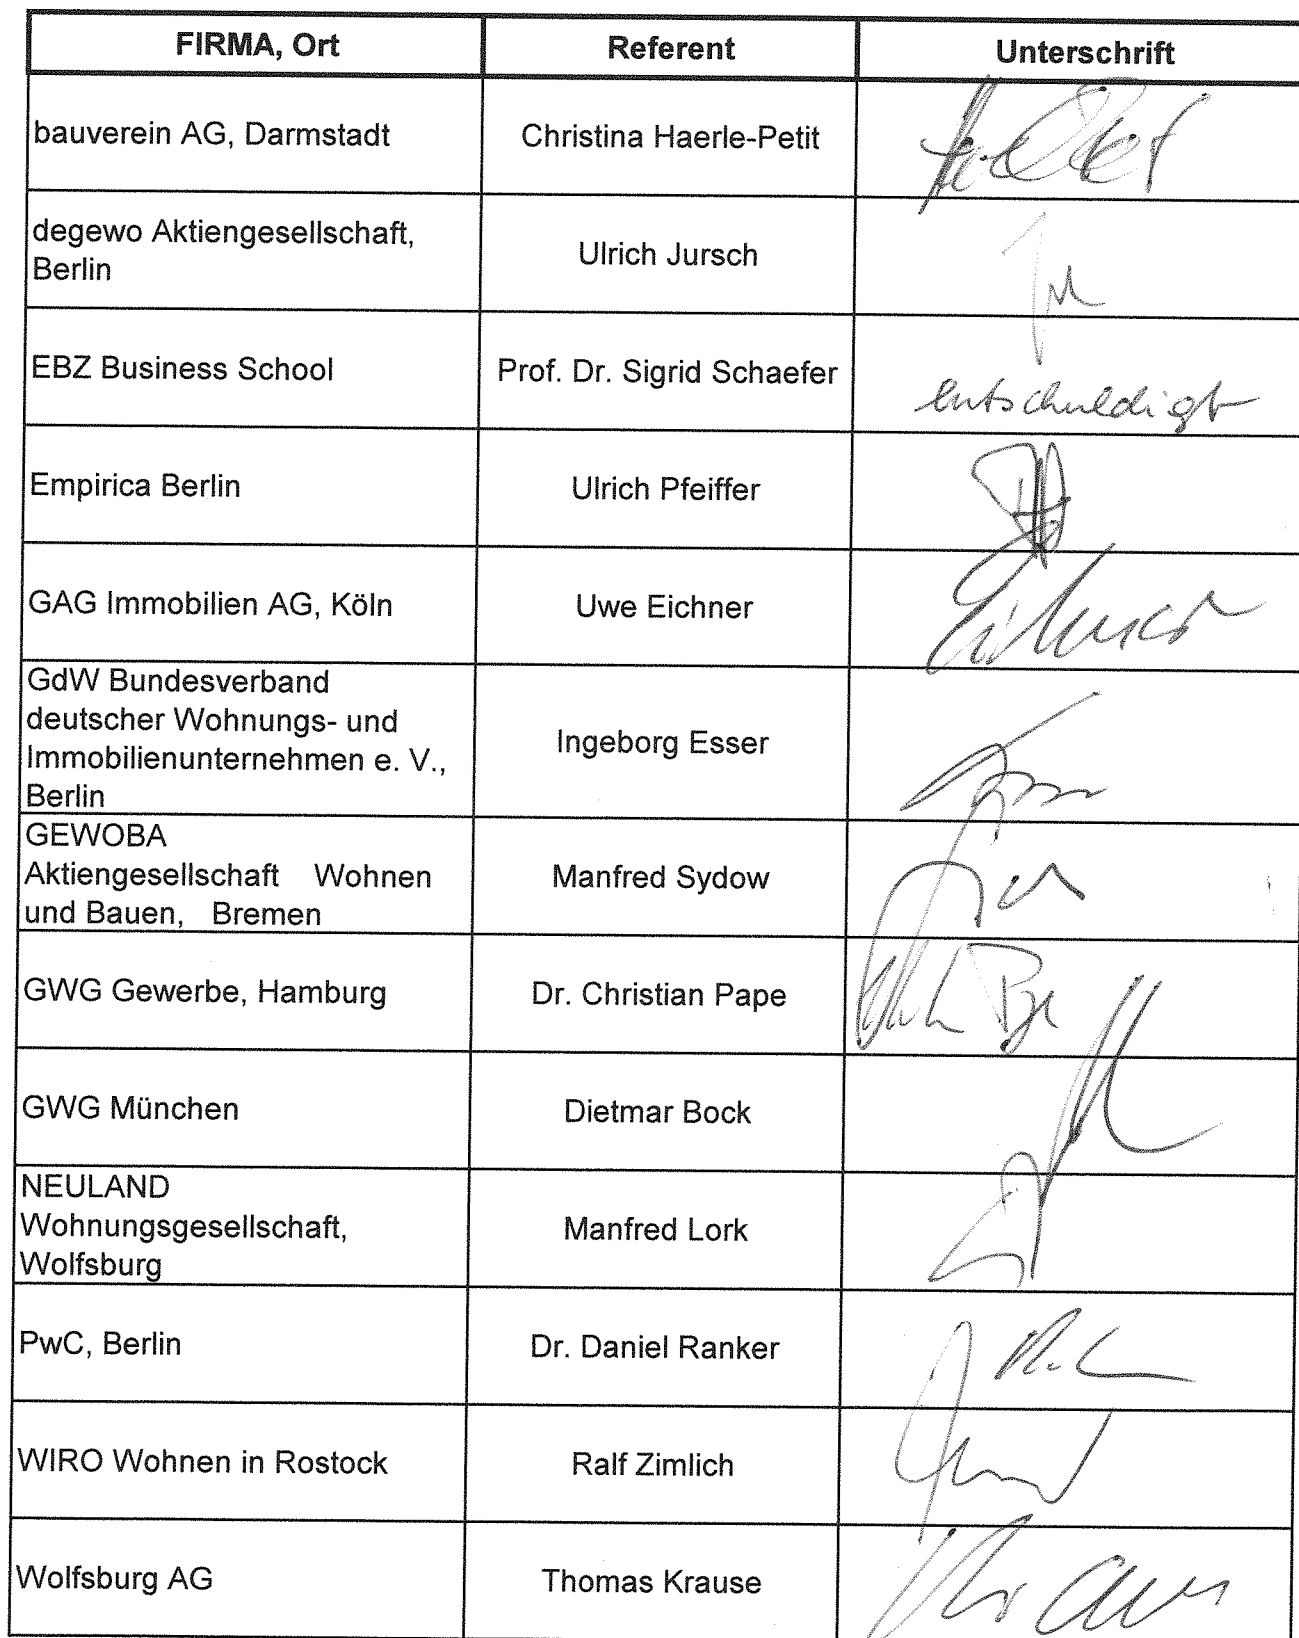 FIRMA, Ort Referent Unterschrift
bauverein AG, Darmstadt Christina Haerle-Petit
degewo Aktiengesellschaft,
Berlin
Ulrich Jursch
EBZ Business School Prof. Dr. Sigrid Schaefer
entschuldigt
Empirica Berlin Ulrich Pfeiffer
GAG Immobilien AG, Köln Uwe Eichner
GdW Bundesverband
deutscher Wohnungs- und
Immobilienunternehmen e. V.,
Berlin
Ingeborg Esser
GEWOBA
Aktiengesellschaft Wohnen
und Bauen, Bremen
Manfred Sydow
GWG Gewerbe, Hamburg Dr. Christian Pape
GWG München Dietmar Bock
NEULAND
Wohnungsgesellschaft,
Wolfsburg
Manfred Lork
PwC, Berlin Dr. Daniel Ranker
WIRO Wohnen in Rostock Ralf Zimlich
Wolfsburg AG Thomas Krause